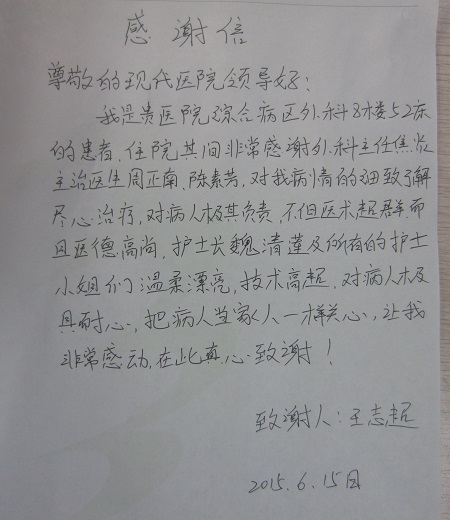 感谢信
尊敬的现代医院领导好:
我是贵医院综合病区外科8楼52床
的患者,住院其间非常感谢外科主任焦
主治医生周正南,陈素芳,对我病情的细致了解
尽心治疗,对病人极其负责,不但医术超群而
且医德高尚,护士长魏清莲及所有的护士
小姐们温柔漂亮,技术高超,对病人极
具耐心,把病人当家人一样关心,让我
非常感动,在此真心致谢!
致谢人:王志超
2015.6.15日